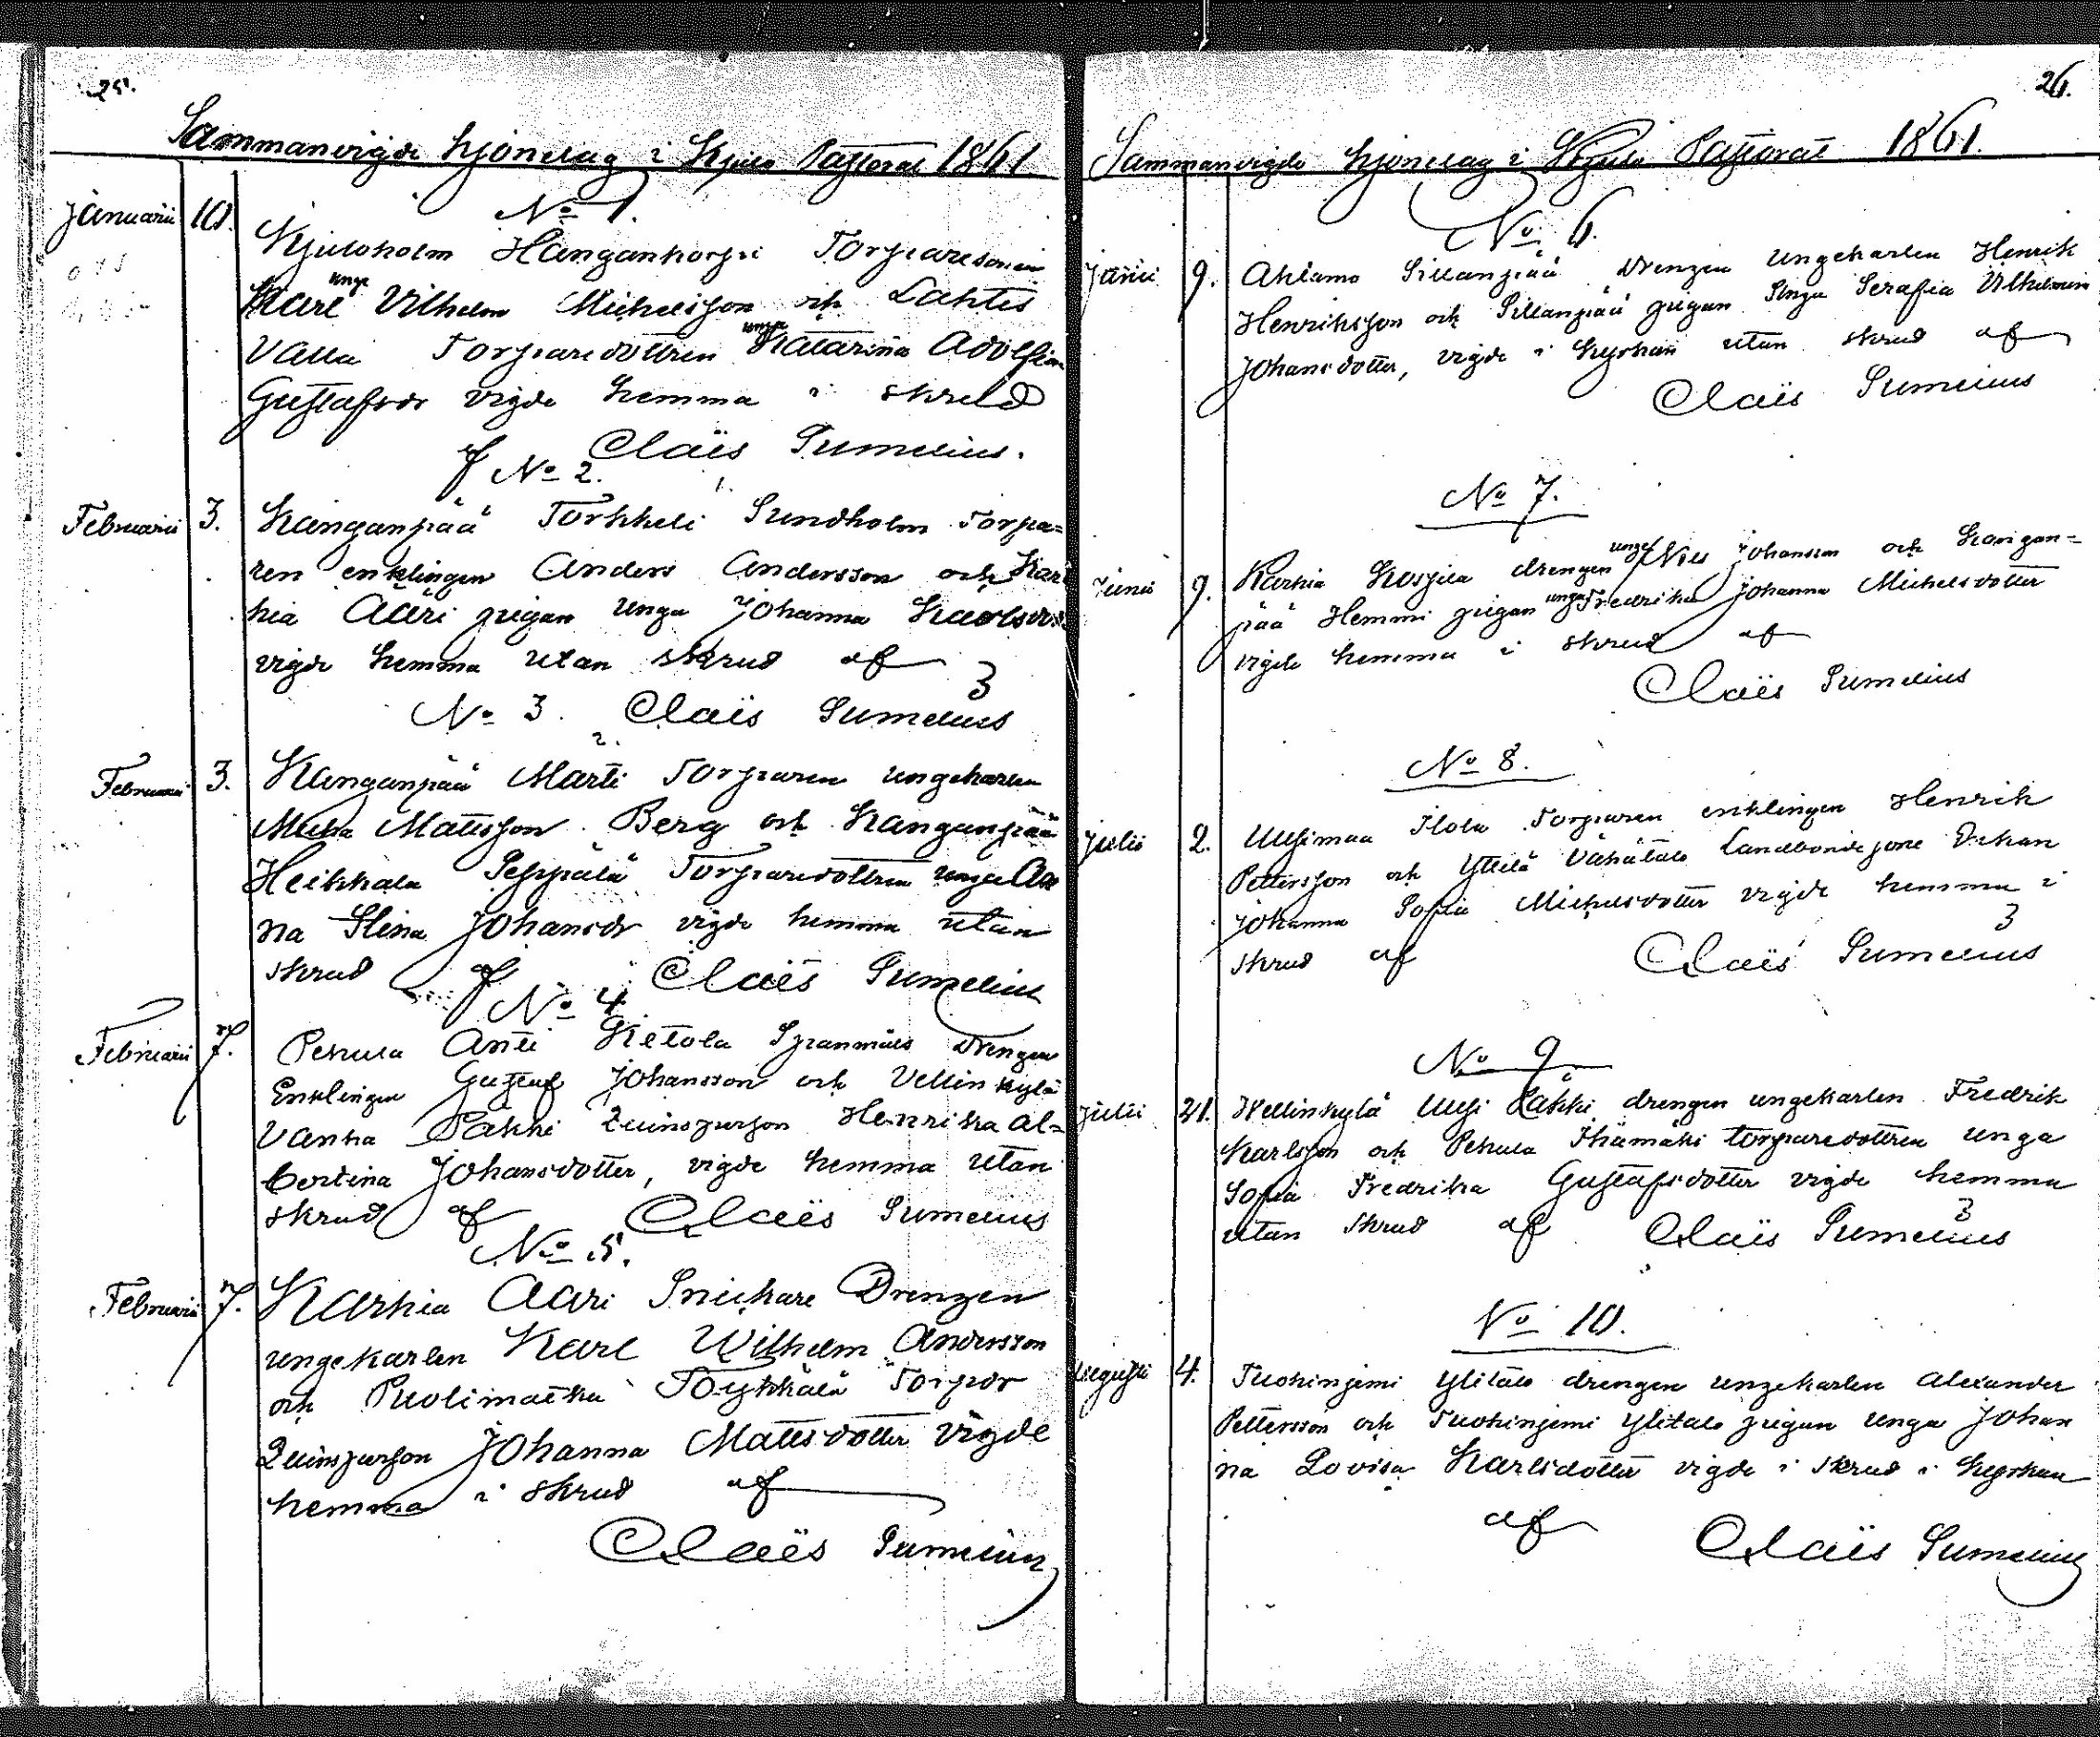 25.
Sammanvigde hjonelag i Kjulo Pastorat 1861
No 1.
Januarii 10. Kjuloholm Hangankorpi Torparesonen
unge
Karl Vilhelm Michelsson och Lahtis
unga
Valla Torparedottren Katarina Adolfina
Gustafsdr vigde hemma i skrud
af Claës Sumelius.
No 2.
Februarii 3. Kanganpää Torkkeli Sundholm Torpa=
ren enklingen Anders Andersson och Kar
hia Aari pigan unga Johanna Karlsdr
vigde hemma utan skrud af
No 3. Claës Sumelius
Februarii 3. Kanganpää Marti Torparen ungekarlen
Mattsson Berg och Kanganpää
Heikkala Seppälä Torparedottren unga An
na Stina Johansdr vigde hemma utan
skrud af Claës Sumelius
No 4
Februarii 7. Pehula Anti Ketola Spanmåls Drengen
Enklingen Gustaf Johansson och Vellinkylä
Vanha Päkki Qvinspersson Henrika Al=
bertina Johansdotter, vigde hemma utan
skrud af Claës Sumelius
No 5.
Februarii 7. Karhia Aari Snickare Drengen
ungekarlen Karl Wilhelm Andersson
och Puolimatka Töykkälä Torpdr
Qvinspersson Johanna Mattsdotter vigde
hemma i skrud af
Claës Sumelius
26.
Sammanvigde hjonelag i Kjulo Pastorat 1861.
No 6.
Junii 9. Ahlamo Sillanpää Drengen ungekarlen Henrik
Henriksson och Sillanpää pigan unga Serafia Vilhelmin
Johansdotter, vigde i kyrkan utan skrud af
Claës Sumelius
No 7.
unge
Junii 9. Karhia Kospila drengen Nils Johansson och Kangan=
unga
pää Hemmi pigan Fredrika Johanna Michelsdotter
vigde hemma i skrud af
Claës Sumelius
No 8.
Julii 2. Uusimaa Ilola Torparen enklingen Henrik
Pettersson och Yttilä Vähätalo Landbonde
Johanna Sofia Michelsdotter vigde hemma i
skrud af Claës Sumelius
No 9
Julii 21. Vellinkylä Uusi Päkki drengen ungekarlen Fredrik
Karlsson och Pehula Ihämäki torparedottren unga
Sofia Fredrika Gustafsdotter vigde hemma
utan skrud af Claës Sumelius
No 10.
Augusti 4. Tuohiniemi Ylitalo drengen ungekarlen Alexander
Pettersson och Tuohiniemi Ylitalo pigan unga Johan
na Lovisa Karlsdotter vigde i skrud i kyrkan
af Claës Sumelius